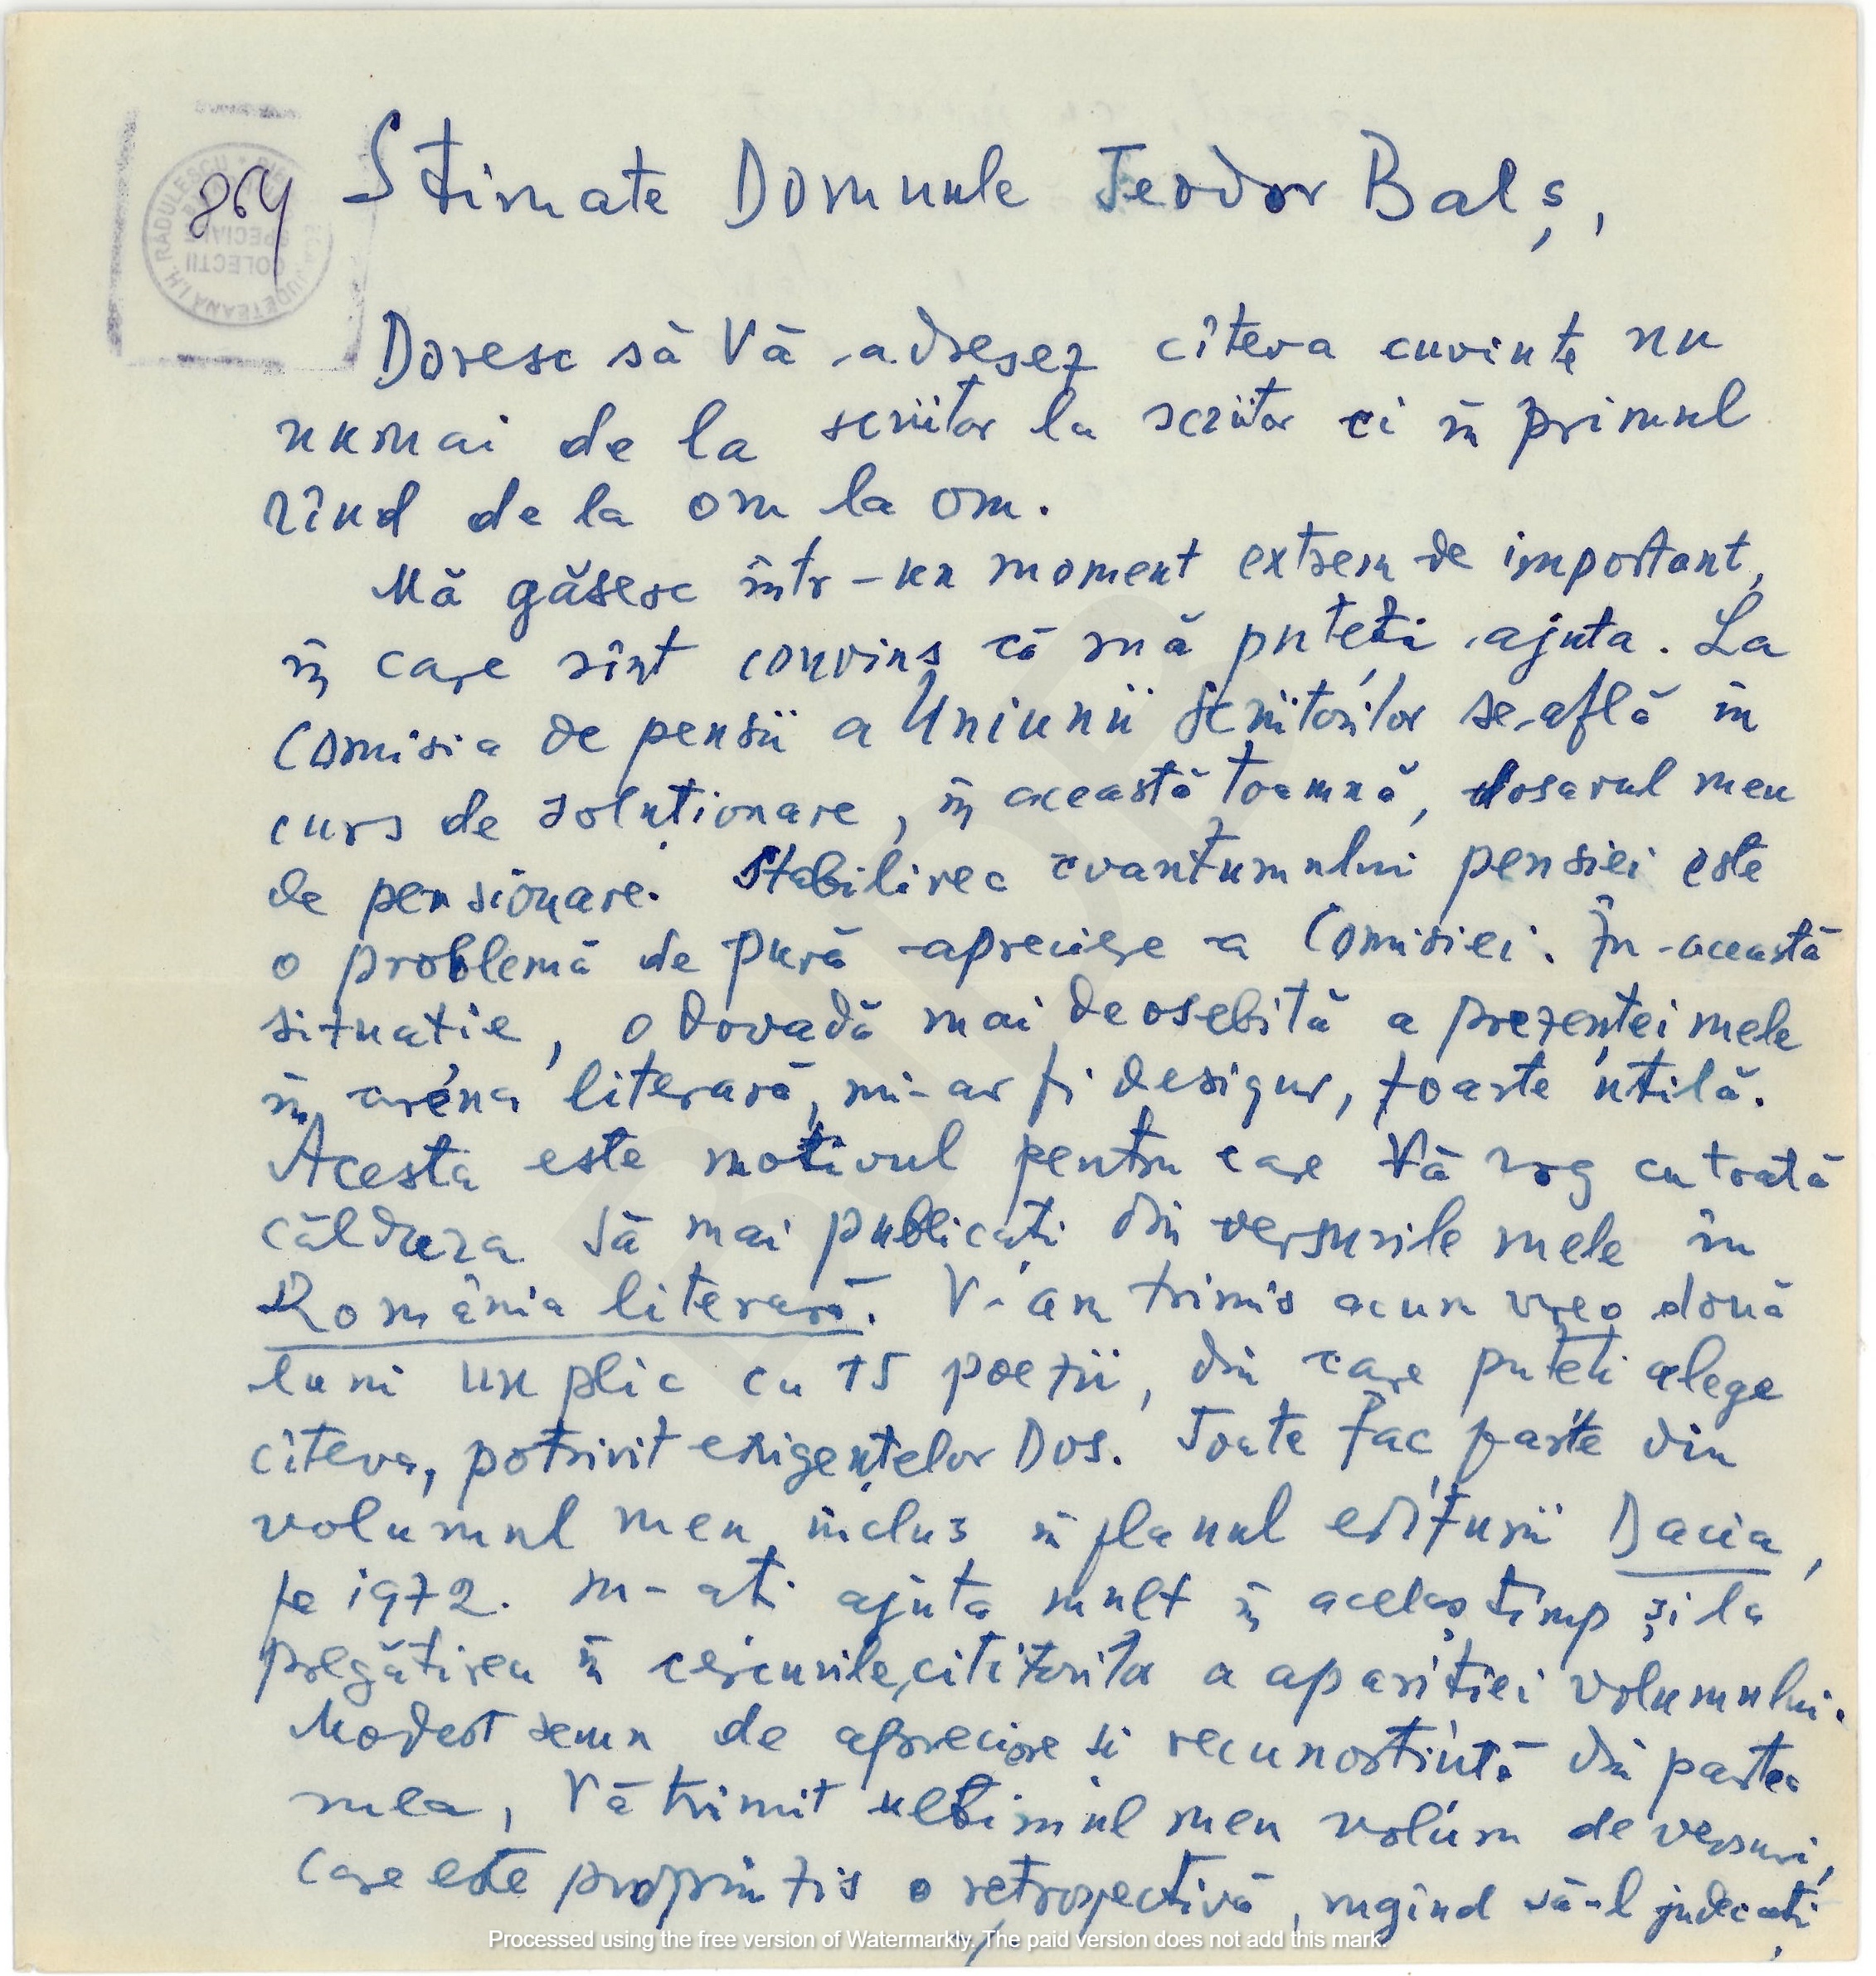 864
RĂDULESCU
SPECIALE
COLECȚII
JUDEȚEANĂ I.H.
Stimate Domnule Teodor Balș,
Doresc să Vă adresez cîteva cuvinte nu
numai de la scriitor la scriitor ci în primul
rînd de la om la om.
Mă găsesc într-un moment extrem de important,
în care sînt convins că mă puteți ajuta. La
Comisia de pensii a Uniunii Scriitorilor se află în
curs de soluționare, în această toamnă, dosarul meu
de pensionare. Stabilirea cvantumului pensiei este
o problemă de pură apreciere a Comisiei. În această
situație, o dovadă mai deosebită a prezenței mele
în arena literară, mi-ar fi desigur, foarte utilă.
Acesta este motivul pentru care Vă rog cu toată
căldura să mai publicați din versurile mele în
România literară. V-am trimis acum vreo două
luni un plic cu 15 poezii, din care puteți alege
cîteva, potrivit exigențelor Dvs. Toate fac parte din
volumul meu inclus în planul editurii Dacia,
pe 1972. M-ați ajuta mult în același timp și la
pregătirea în cercurile cititorilor a apariției volumului.
Modest semn de apreciere și recunoștință din partea
mea, Vă trimit ultimul meu volum de versuri,
care este propriu zis o retrospectivă, rugînd să-l judecați
BJDB
Processed using the free version of Watermarkly. The paid version does not add this mark.